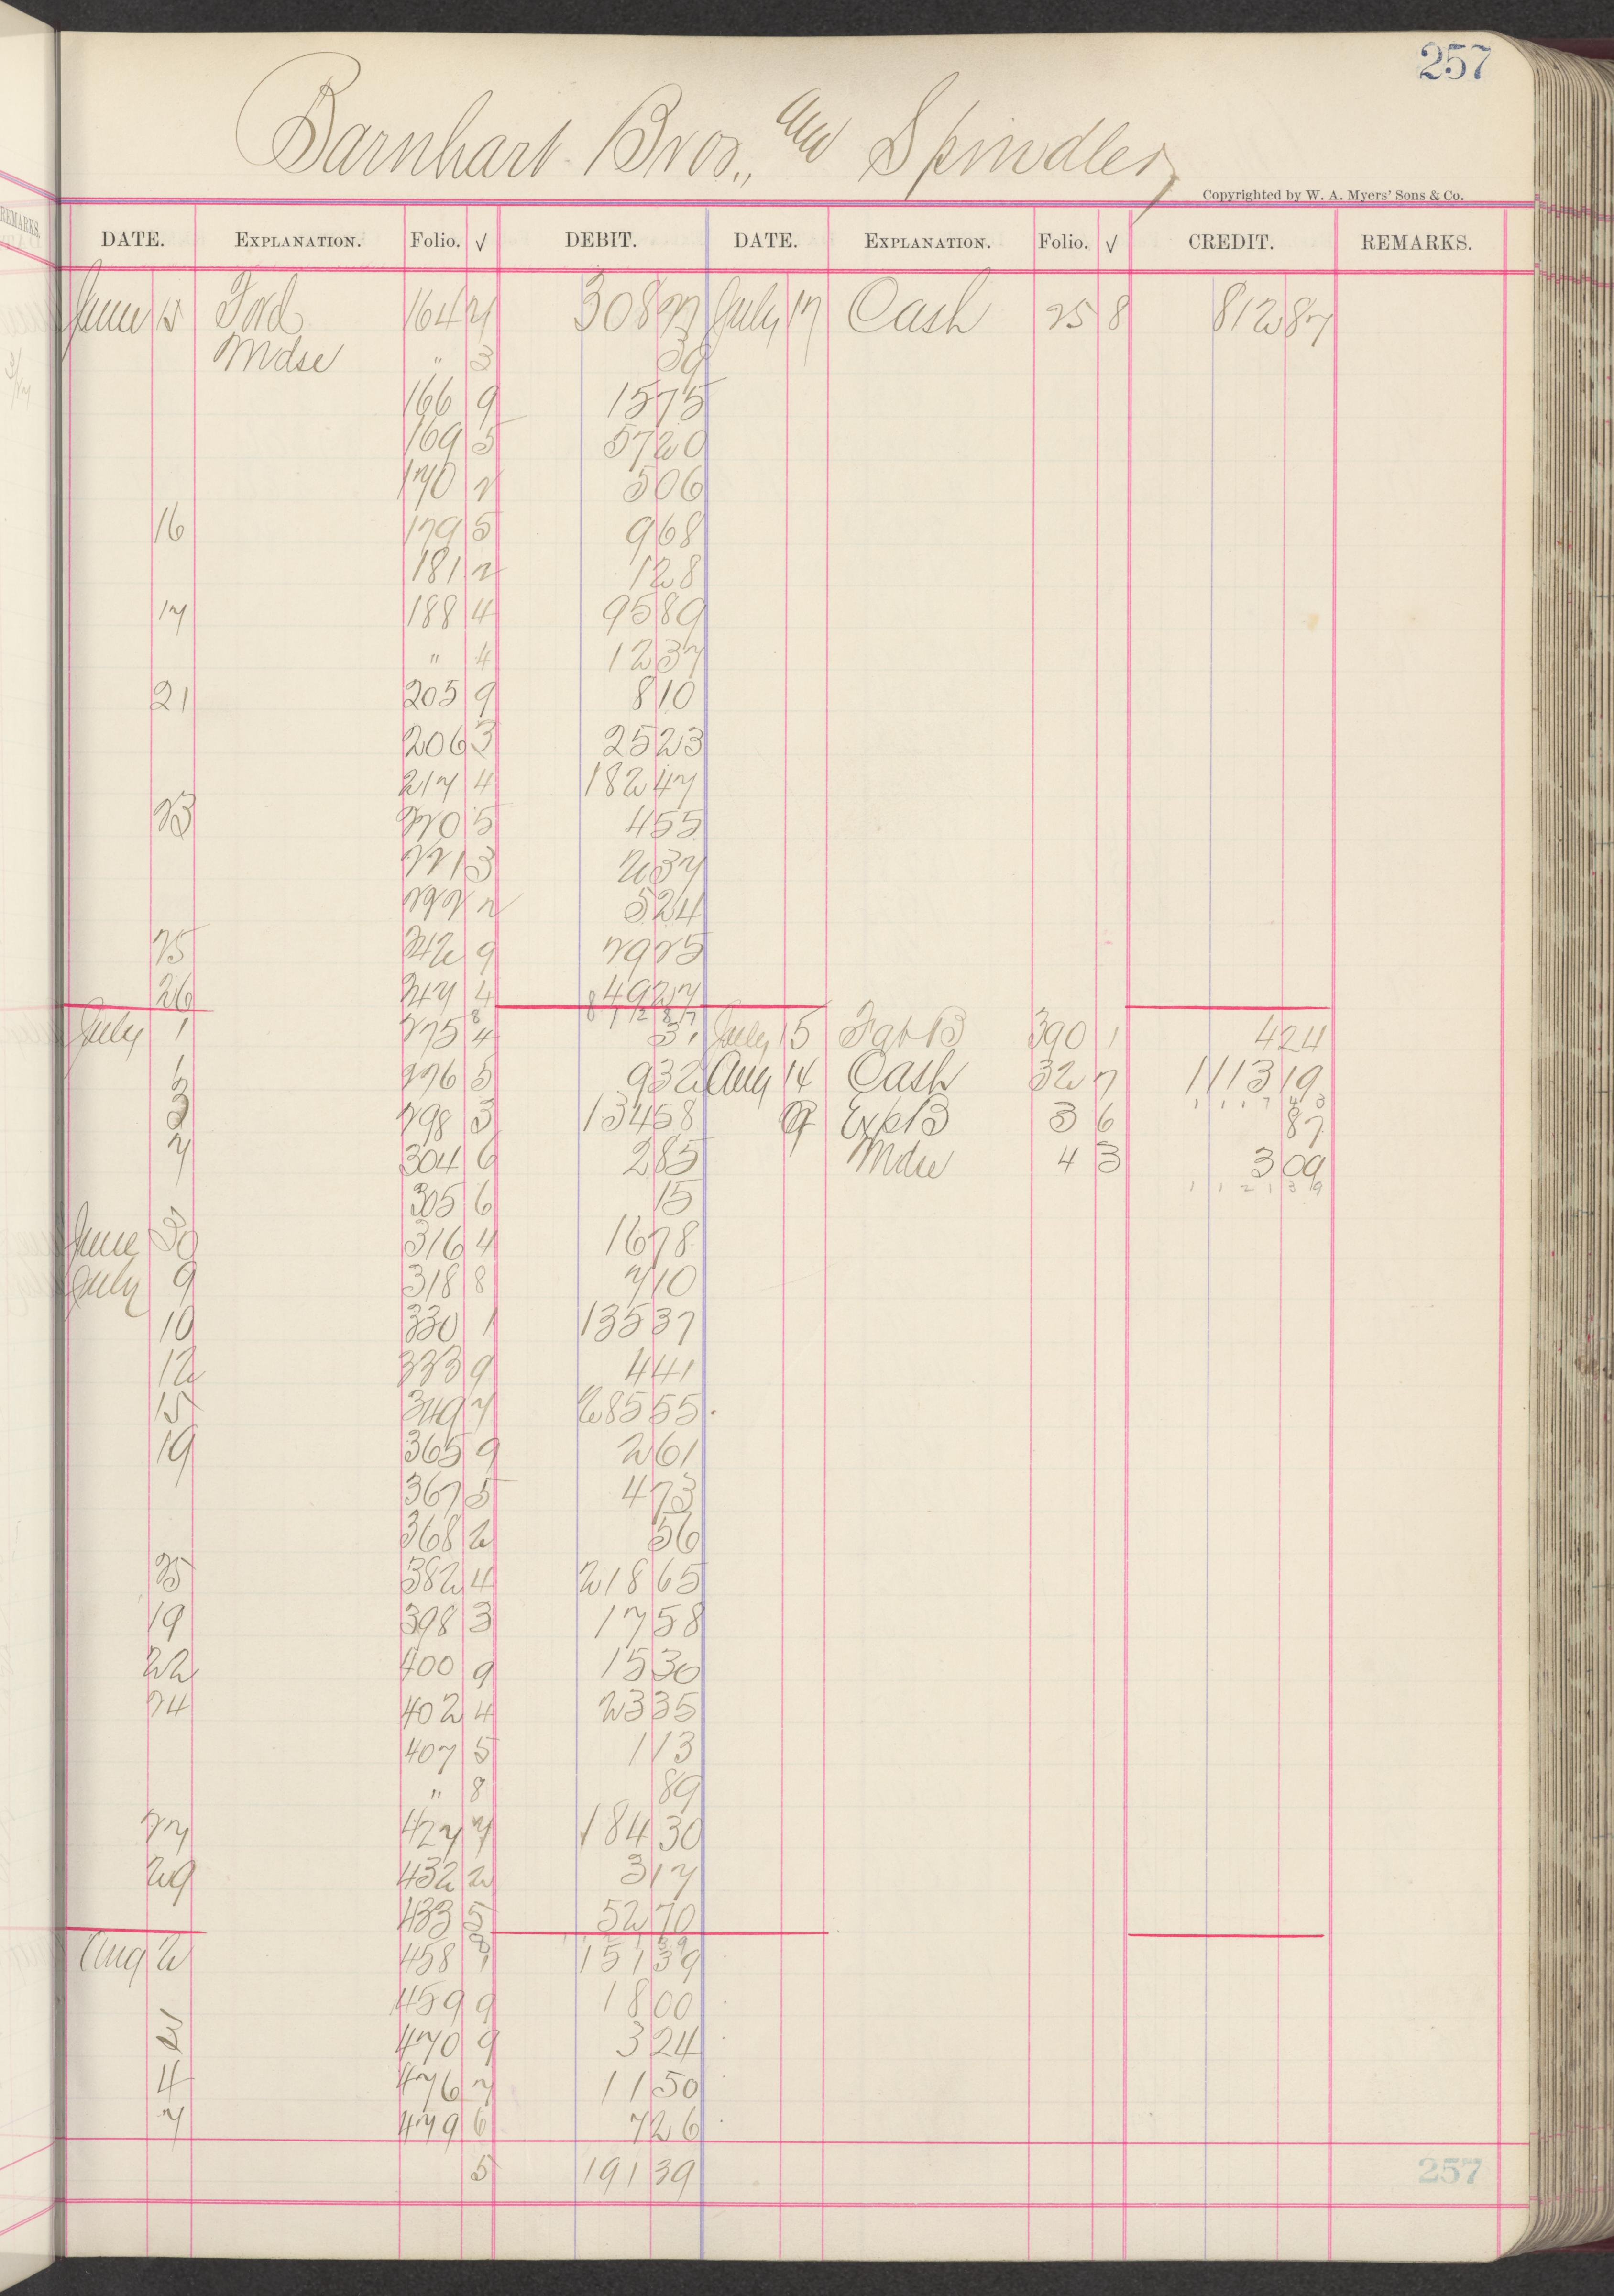 257
Barnhart Bros., and Spindler
Copyrighted by W. A. Myers' Sons & Co.
REMARKS.
DATE. EXPLANATION. Folio. √ DEBIT. DATE. EXPLANATION. Folio. √ CREDIT. REMARKS.
June 15 Fwd 164 2 308 July 17 Cash 25 8 812 87
Mdse " 3 39
166 9 15 75
169 5 57 20
170 2 5 06
16 179 5 9 68
181 2 1 28
17 188 4 95 89
" 4 12 37
21 205 9 8 10
206 3 25 23
217 4 182 47
23 220 5 4 55
221 3 2 37
222 2 5 24
25 242 9 29 25
26 247 4 49 27
812 87
July 1 275 4 3 July 15 390 1 4 24
1 276 5 9 32 Aug 14 Cash 32 7 1113 19
3 298 3 134 58 9 ExpB 3 6 87
7 304 6 2 85 Mdse 4 3 3 09
305 6 15 1 1 2 1 3 9
June 30 316 4 16 78
July 9 318 8 7 10
10 330 1 135 37
12 333 9 4 41
15 349 7 285 55
19 365 9 2 61
367 5 4 73
368 2 56
25 382 4 218 65
19 398 3 17 58
22 400 9 15 30
24 402 4 23 35
407 5 1 13
" 8 89
27 427 7 184 30
29 432 2 3 17
433 5 52 70
Aug 2 458 151 39
459 9 18 00
3 470 9 3 24
4 476 7 11 50
7 479 6 7 26
5 191 39
257